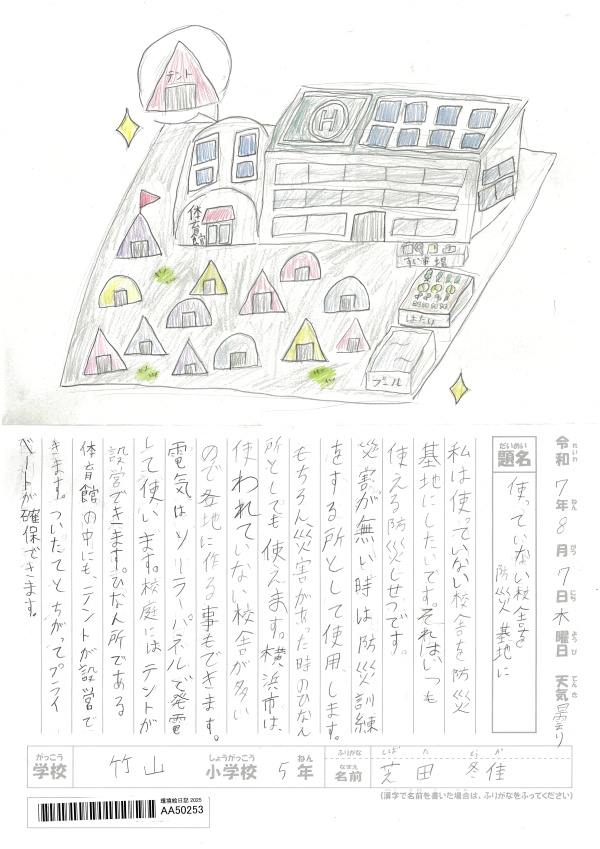 テント
H
体育館
すい事場
はたけ
プール
令和7年8月7日木曜日 天気曇り
れいわ ねん がつ にち ようび てんき
だいめい
題名
使っていない校舎を
防災基地に
私は使っていない校舎を防災
基地にしたいです。それはいつも
使える防災しせつです。
災害が無い時は防災訓練
をする所として使用します。
もちろん災害があった時のひなん
所としても使えます。横浜市は、
使われていない校舎が多い
ので各地に作る事もできます。
電気はソーラーパネルで発電
して使います。校庭にはテントが
設営できます。ひなん所である
体育館の中にも、テントが設営で
きます。ついたてとちがってプライ
ベートが確保できます。
がっこう
学校
竹山
しょうがっこう
小学校
5
ねん
年
ふりがな
なまえ
名前
しばた
芝田 冬佳
(漢字で名前を書いた場合は、ふりがなをふってください)
環境絵日記 2025
AA50253